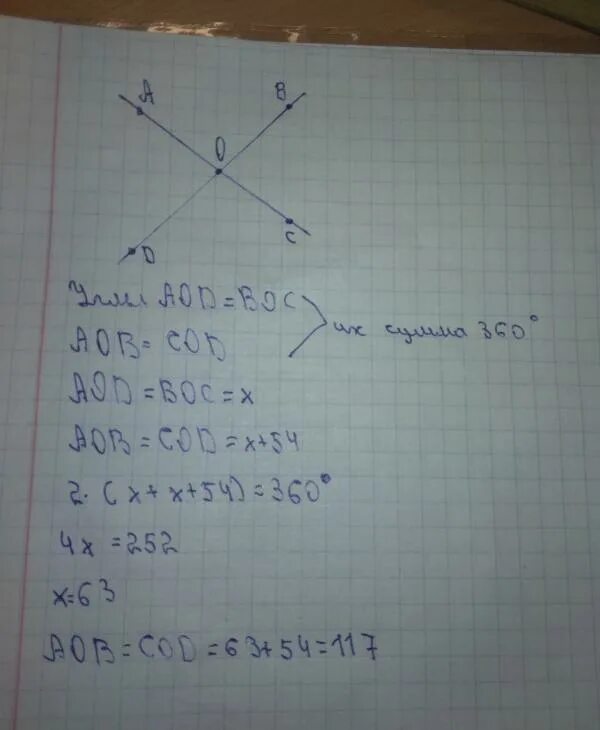 A
B
O
D
C
Углы AOD = BOC
их сумма 360°
AOB = COD
AOD = BOC = x
AOB = COD = x+54
2·(x+x+54)=360°
4x = 252
x=63
AOB = COD = 63+54=117